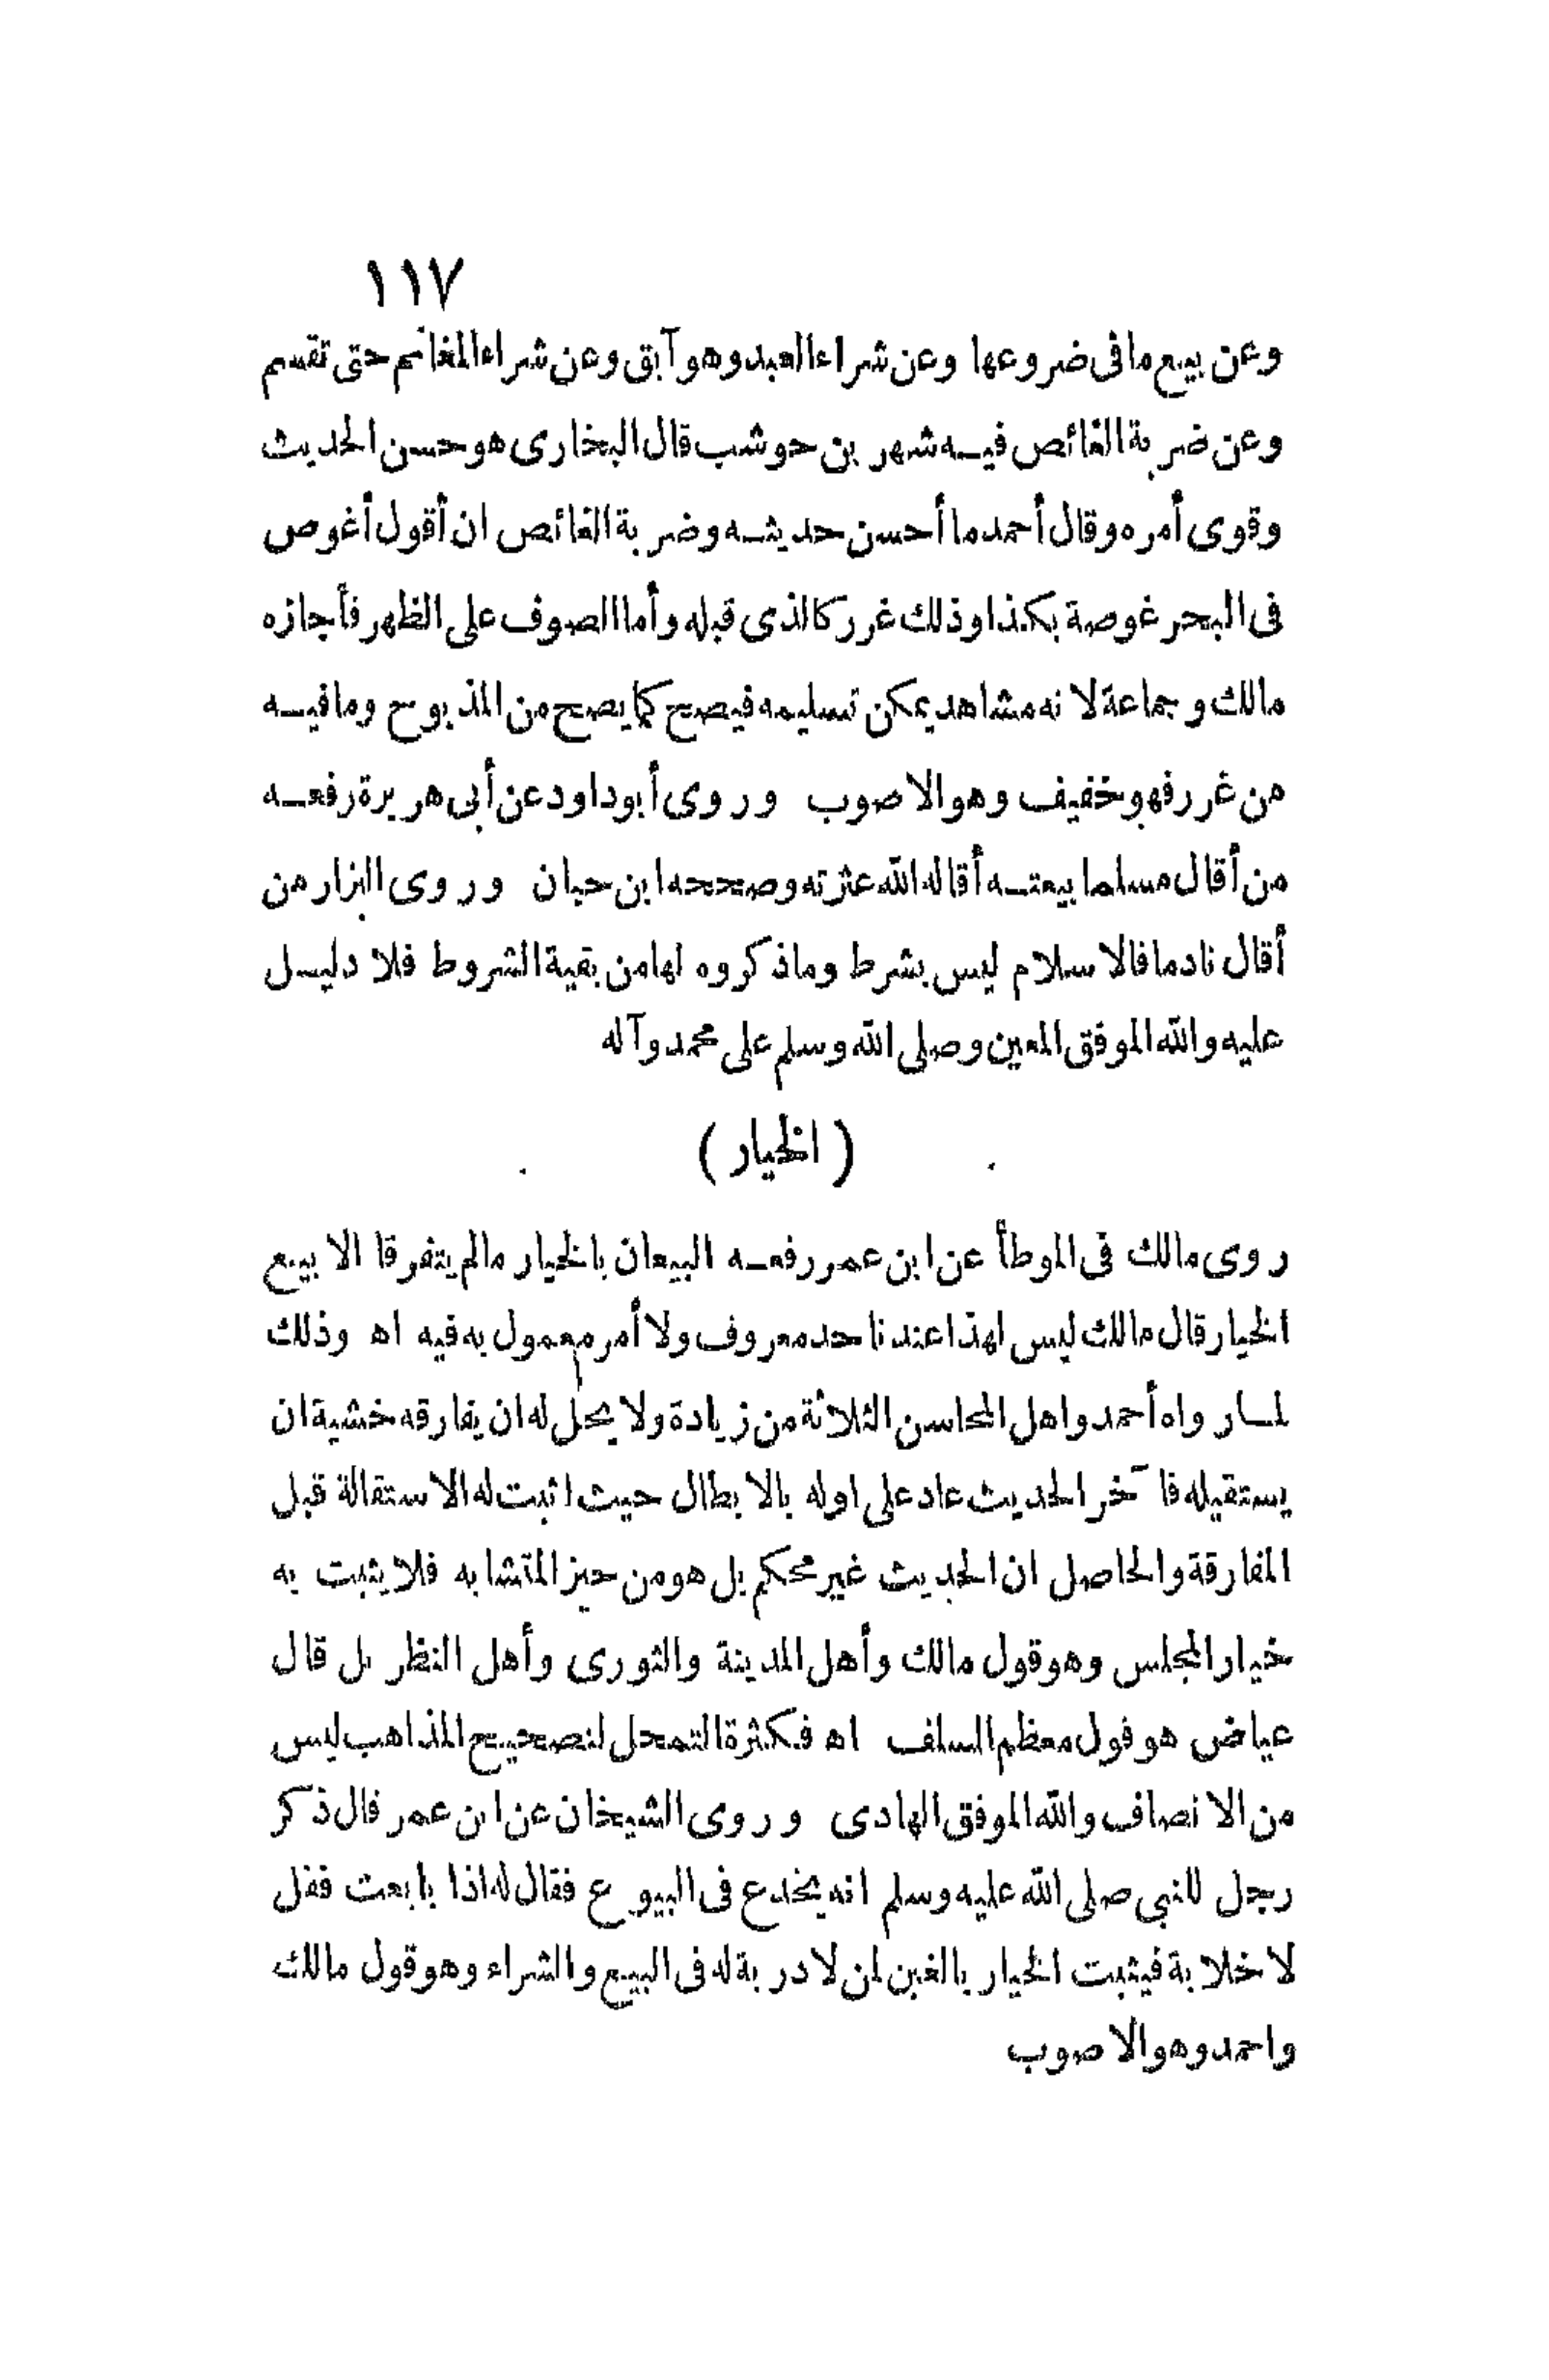 ١١٧
وعن بيع ما فى ضروعها وعن شراء العبد وهو آبق وعن شراء المغانم حتى تقسم
وعن ضربة الغائص فيه شهر بن حوشب قال البخارى هو حسن الحديث
وقوى أمره وقال أحمد ما أحسن حديثه وضربة الغائص ان أقول أغوص
فى البحر غوصة بكذا وذلك غرر كالذى قبله وأما الصوف على الظهر فأجازه
مالك وجماعة لانه مشاهد يمكن تسليمه فيصح كما يصح من المذبوح وما فيه
من غرر فهو خفيف وهو الاصوب وروى أبو داود عن أبى هريرة رفعه
من أقال مسلما بيعته أقاله الله عثرته وصححه ابن حبان وروى البزار من
أقال نادما فالاسلام ليس بشرط وما ذكروه لها من بقية الشروط فلا دليل
عليه والله الموفق المعين وصلى الله وسلم على محمد وآله
( الخيار )
روى مالك فى الموطأ عن ابن عمر رفعه البيعان بالخيار ما لم يتفرقا الا بيع
الخيار قال مالك ليس لهذا عندنا حد معروف ولا أمر معمول به فيه اه وذلك
لما رواه أحمد واهل المحاسن الثلاثة من زيادة ولا يحل له ان يفارقه خشية ان
يستقيله فآخر الحديث عاد على اوله بالابطال حيث اثبت له الاستقالة قبل
المفارقة والحاصل ان الحديث غير محكم بل هو من حيز المتشابه فلا يثبت به
خيار المجلس وهو قول مالك وأهل المدينة والثورى وأهل النظر بل قال
عياض هو قول معظم السلف اه فكثرة التمحل لتصحيح المذاهب ليس
من الانصاف والله الموفق الهادى وروى الشيخان عن ابن عمر قال ذكر
رجل للنبي صلى الله عليه وسلم انه يخدع فى البيوع فقال له اذا بايعت فقل
لا خلابة فيثبت الخيار بالغبن لمن لا دربة له فى البيع والشراء وهو قول مالك
واحمد وهو الاصوب